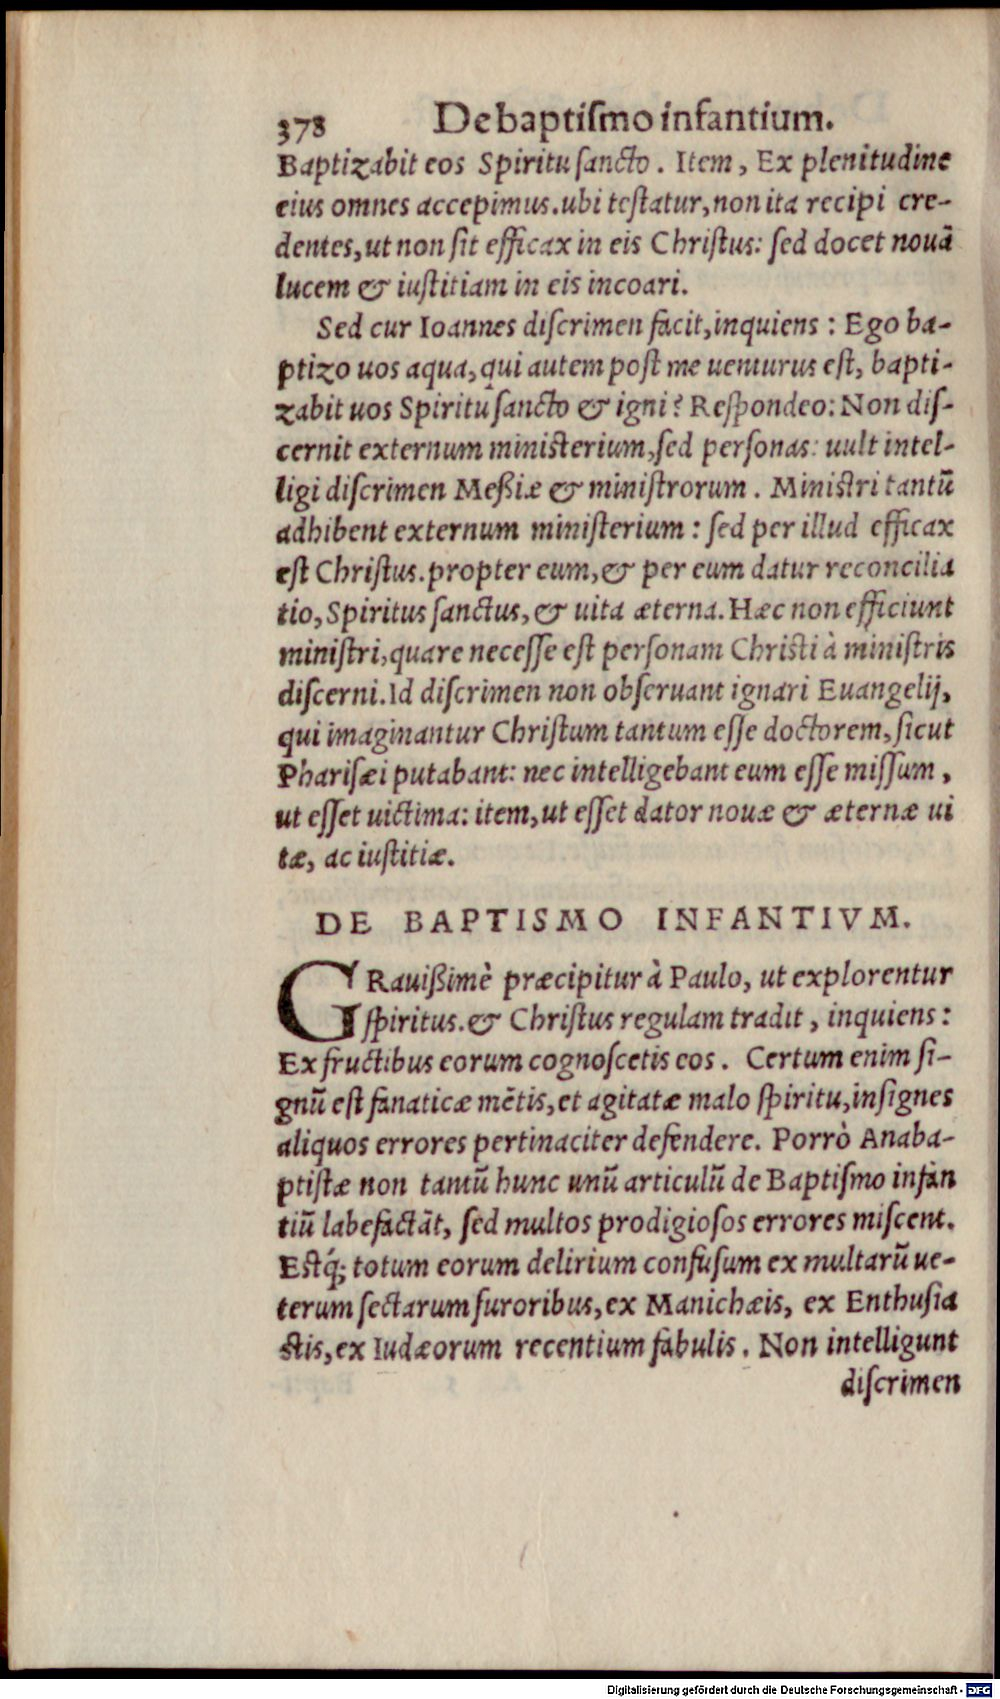 378 De baptiſmo infantium.
Baptizabit eos Spiritu ſancto. Item, Ex plenitudine
eius omnes accepimus. ubi teſtatur, non ita recipi cre-
dentes, ut non ſit efficax in eis Chriſtus: ſed docet nouā
lucem & iuſtitiam in eis incoari.
Sed cur Ioannes diſcrimen facit, inquiens: Ego ba-
ptizo uos aqua, qui autem poſt me uenturus eſt, bapti-
zabit uos Spiritu ſancto & igni? Reſpondeo: Non diſ-
cernit externum miniſterium, ſed perſonas: uult intel-
ligi diſcrimen Meßiæ & miniſtrorum. Miniſtri tantū
adhibent externum miniſterium: ſed per illud efficax
eſt Chriſtus. propter eum, & per eum datur reconcilia
tio, Spiritus ſanctus, & uita æterna. Hæc non efficiunt
miniſtri, quare neceſſe eſt perſonam Chriſti à miniſtris
diſcerni. Id diſcrimen non obſeruant ignari Euangelij,
qui imaginantur Chriſtum tantum eſſe doctorem, ſicut
Phariſæi putabant: nec intelligebant eum eſſe miſſum,
ut eſſet uictima: item, ut eſſet dator nouæ & æternæ ui
tæ, ac iuſtitiæ.
DE BAPTISMO INFANTIVM.
GRauißimè præcipitur à Paulo, ut explorentur
ſpiritus. & Chriſtus regulam tradit, inquiens:
Ex fructibus eorum cognoſcetis eos. Certum enim ſi-
gnū eſt fanaticæ mētis, et agitatæ malo ſpiritu, inſignes
aliquos errores pertinaciter defendere. Porrò Anaba-
ptiſtæ non tantū hunc unū articulū de Baptiſmo infan
tiū labefactāt, ſed multos prodigioſos errores miſcent.
Eſtq́; totum eorum delirium confuſum ex multarū ue-
terum ſectarum furoribus, ex Manichæis, ex Enthuſia
ſtis, ex Iudæorum recentium fabulis. Non intelligunt
diſcrimen
Digitalisierung gefördert durch die Deutsche Forschungsgemeinschaft - DFG